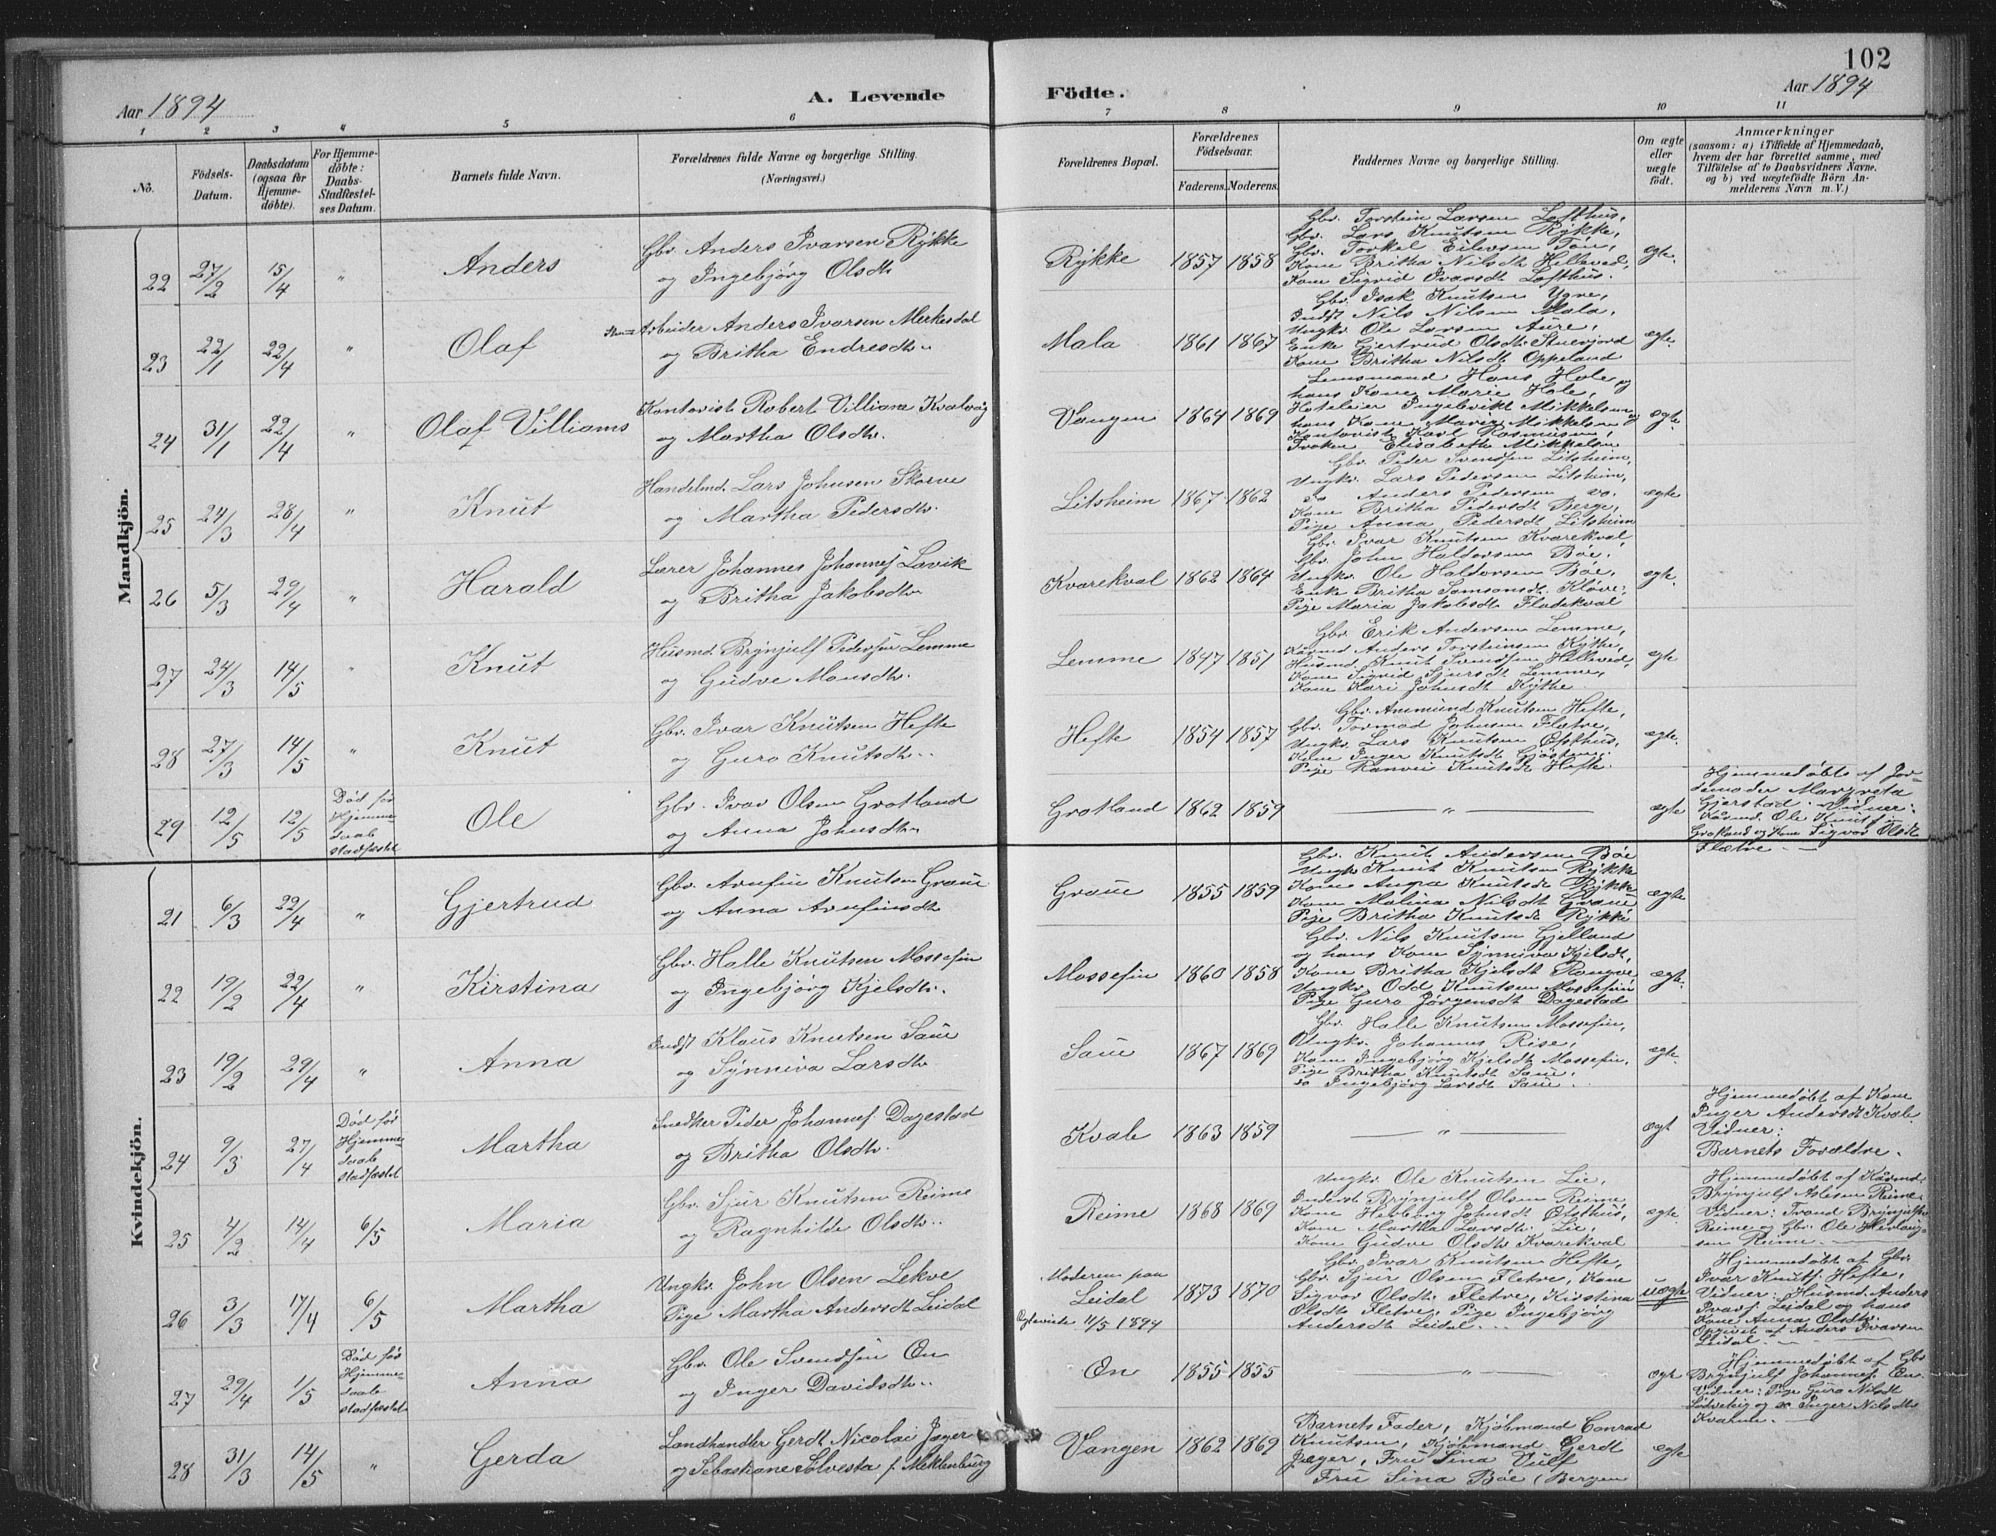 102
Aar 1894
A. Levende
Födte.
Aar 1894
1 2 3 4 5 6 7 8 9 10 11
No.
Födsels-
Datum.
Daabsdatum
(ogsaa for
Hjemme-
döbte).
For Hjemme-
döbte:
Daabs-
Stadfæstel-
ses Datum.
Barnets fulde Navn.
Forældrenes fulde Navne og borgerlige Stilling.
(Næringsvei.)
Forældrenes Bopæl.
Forældrenes
Födselsaar.
Faderens. Moderens.
Faddernes Navne og borgerlige Stilling.
Om ægte
eller
uægte
födt.
Anmærkninger
(saasom: a) i Tilfælde af Hjemmedaab,
hvem der har forrettet samme, med
Tilföielse af to Daabsvidners Navne,
og b) ved uægtefödte Börn An-
melderens Navn m. V.)
Mandkjön.
22 27/2 15/4 " Anders
Gbr. Anders Ivarsen Rykke
og Ingebjørg Olsdtr.
Rykke 1857 1858
Gbr. Torstein Larsen Lofthus,
Gbr. Lars Knutsen Rykke,
Gbr. Torkel Eilevsen Tøn,
Kone Britha Nilsdt Helleved,
Kone Sigvid Ivarsdt Lofthus.
ægte.
23 22/1 22/4 " Olaf
Arbeider Anders Ivarsen Merkesdal
og Britha Endresdtr.
Mala 1861 1867
Gbr. Isak Knutsen Ygre,
Indst Nils Nilsen Mala,
Ungkr. Ole Larsen Aure,
Enke Gjertrud Olsdtr
Kone Britha Nilsdt Oppeland
ægte.
24 31/1 22/4 " Olaf Villiams
Kontorist Robert Villiam Kvalvåg
og Martha Olsdtr.
Vangen 1864 1869
Lensmand Hans Hole, og
hans Kone Marie Hole,
Hoteleier Ingebrikt Mikkelsen og
hans Kone Maria Mikkelsen
Kontorist Karl Rasmusen,
Frøken Elisabeth Mikkelsen
ægte.
25 24/3 28/4 " Knut
Handelmd. Lars Johnsen Skorve
og Martha Pedersdtr.
Litsheim 1867 1862
Gbr. Peder Svendsen Litsheim,
Ungkr. Lars Pedersen Litsheim,
do Anders Pedersen do.
Kone Britha Pedersdt Berge,
Pige Anna Pedersdt Litsheim
ægte
26 5/3 29/4 " Harald
Lærer Johannes Johannesf Lavik
og Britha Jakobsdtr.
Kvarekval 1862 1864
Gbr. Ivar Knutsen Kvarekval,
Gbr. John Haldorsen Bøe,
Ungkr. Ole Haldorsen Bøe,
Enke Britha Samsonsdt. Kløve,
Pige Maria Jakobsdt Fladekval
ægte.
27 24/3 14/5 " Knut
Husmd. Brynjulf Pedersen Lemme
og Gudve Monsdtr.
Lemme 1847 1851
Gbr. Erik Andersen Lemme,
Anders Torsteinsen Kythe,
Husmd Knut Svendsen Helleved,
Kone Sigvid Sjursdt Lemme,
Kone Kari Johnsdt Kythe
ægte
28 27/3 14/5 " Knut
Gbr. Ivar Knutsen Hefte
og Guro Knutsdtr.
Hefte 1854 1857
Gbr. Ammund Knutsen Hefte,
Gbr. Tormod Johnsen Flætre,
Ungkr. Lars Knutsen Ofsthus,
Kone Inger Knutsdt Gjøstein,
Pige Ranvei Knutsdt Hefte.
ægte.
29 12/5 12/5
Død før
Hjemme-
daab
stadfæstet
Ole
Gbr. Ivar Olsen Grotland
og Anna Johnsdtr.
Grotland 1862 1859
"
ægte
Hjemmedøbt af Jor-
demoder Margreta
Gjerstad. Vidner:
Ole Knutsen
Grotland og Kone Sigvor Olsdt
Flætre.
Kvindekjön.
21 6/3 22/4 " Gjertrud
Gbr. Arnfin Knutsen Graue
og Anna Arnfinsdtr.
Graue 1855 1859
Gbr. Knut Andersen Bøe
Ungkr Knut Knutsen Rykke
Kone Anna Knutsdt Rykke
Kone Malina Nilsdt Graue
Pige Britha Knutsdt Rykke
ægte
22 19/2 22/4 " Kirstina
Gbr. Halle Knutsen Mossefin
og Ingebjørg Kjelsdtr.
Mossefin 1860 1858
Gbr. Nils Knutsen Gjelland
og hans Kone Synniva Kjelsdt,
Kone Britha Kjelsdt Rongve
Ungkr. Odd Knutsen Mossefin
Pige Guro Jørgensdt Dagestad
ægte.
23 19/2 29/4 " Anna
Indst Klaus Knutsen Saue
og Synniva Larsdtr
Saue 1867 1869
Gbr. Halle Knutsen Mossefin,
Ungkr. Johannes Rise,
Kone Ingebjørg Kjelsdt Mossefin,
Pige Britha Knutsdt Saue,
do Ingebjørg Larsdt Saue.
ægte.
24 9/3 27/4
Død før
Hjemme-
daab
stadfæstet
Martha
Snedker Peder Johannesf. Dagestad
og Britha Olsdtr.
Kvale 1863 1859
"
ægt
Hjemmedøbt af Kone
Inger Andersdt Kvale
Vidner:
Barnets Forældre.
25 4/2 14/4 6/5 Maria
Gbr. Sjur Knutsen Reime
og Ragnhilde Olsdtr.
Reime 1868 1869
Ungkr. Ole Knutsen Lie,
Inderst Brynjulf Olsen Reime,
Kone Herborg Johnsdt Ofsthus,
Kone Martha Larsdtr. Lie,
Kone Gudve Olsdtr Kvarekval
ægte.
Hjemmedøbt af
Brynjulf Aslesen Reime
Vidner: Trond Brynjulfsen
Reime og Gbr. Ole Herlaug-
sen Reime.
26 3/3 17/4 6/5 Martha
Ungkr. John Olsen Lekve
Pige Martha Andersdt Leidal
Moderen paa
Leidal
Egteviede 11/5 1894
1873 1870
Gbr. Ivar Knutsen Hefte,
Gbr. Sjur Olsen Fletre, Kone
Sigvor Olsdtr. Fletre, Kirstina
Olsdt Fletre, Pige Ingebjørg
Andersdt Leidal.
uægte
Hjemmedøbt af Gbr.
Ivar Knutsf. Hefte,
Vidner: Husmd. Anders
Ivarsf. Leidal og hans
Kone Anna Olsdtr.
Opgivet af Anders Ivarsen
Leidal
27 29/4 1/5
Død før
Hjemme-
daab
stadfæstet
Anna
Gbr. Ole Svendsen Øn
og Inger Davidsdtr.
Øn 1855 1855
"
ægt
Hjemmedøbt af Gbr
Brynjulf Johannesf. Øn
Vidner: Pige Guro Nilsdt
og do Inger Nilsdt
28 31/3 14/5 " Gerda
Landhandler Gerdt Nicolai Jæger
og Sebastiane Sølvesta f. Meklenburg
Vangen 1862 1869
Barnets Fader, Kjøbmand Conrad
Knutsen, Kjøbmand Gerdt
Jæger, Fru Sina Vulf
Fru Sina Bøe (Bergen
ægte